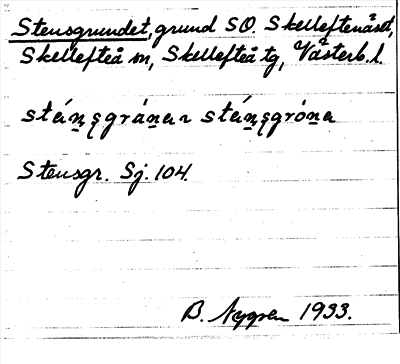 Stensgrundet, grund SO. Skelleftenäset,
Skellefteå sn, Skellefteå tg, Västerb. l.
stáṇşgráṇa ~ stáṇşgróṇa
Stensgr. Sj. 104.
B. Nygren 1933.